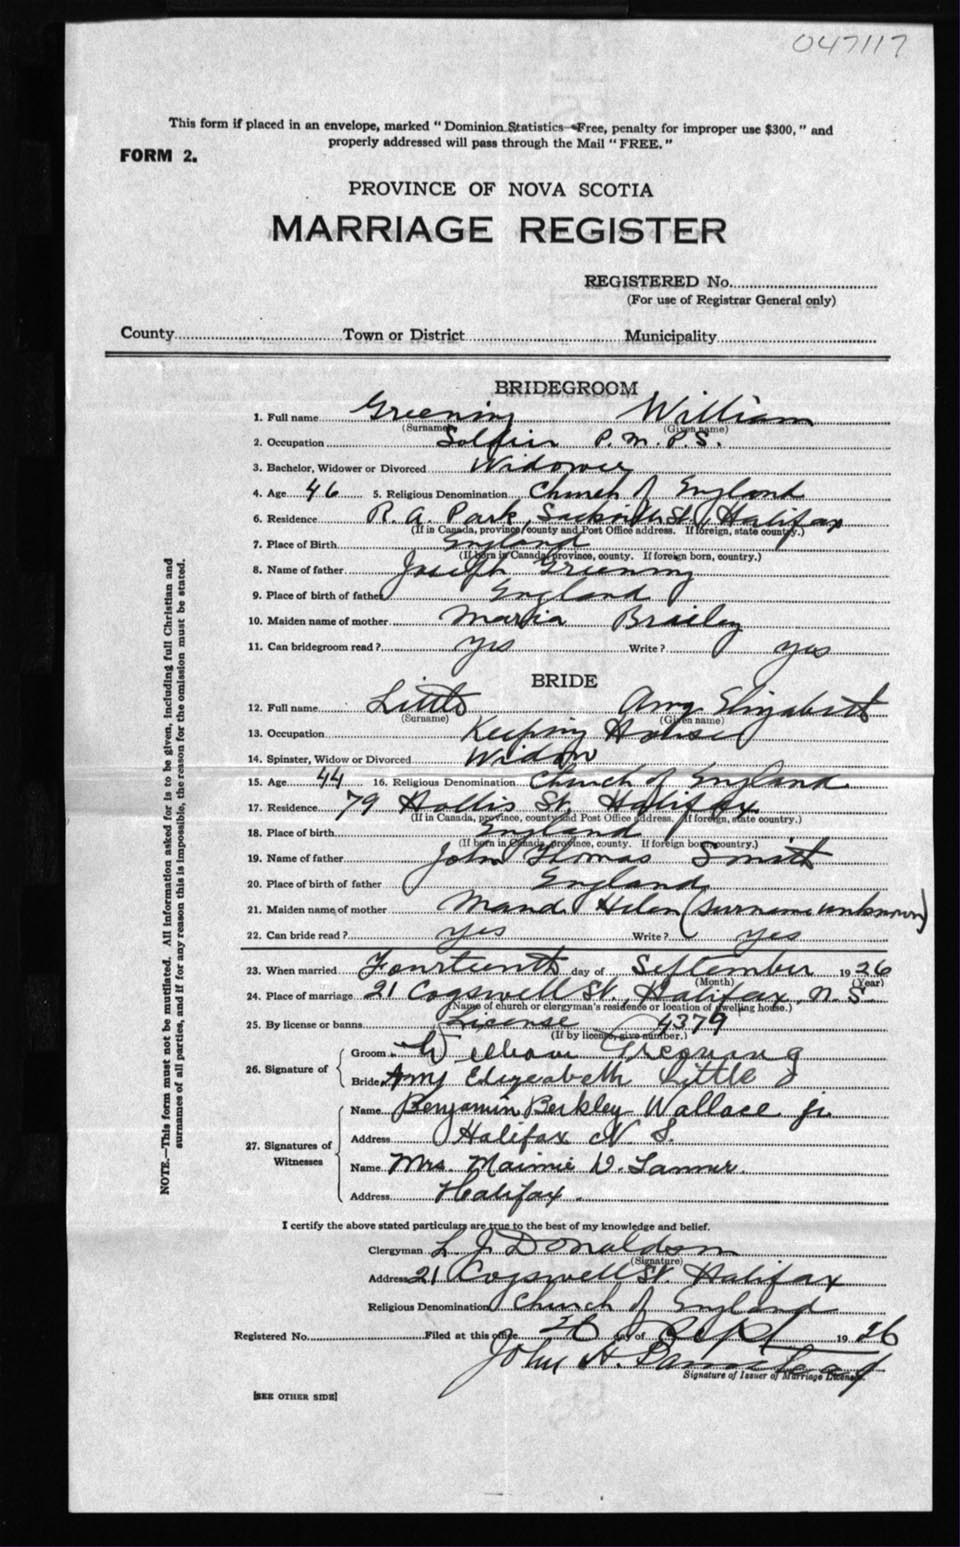 047117
This form if placed in an envelope, marked "Dominion Statistics—Free, penalty for improper use $300," and
properly addressed will pass through the Mail "FREE."
FORM 2.
PROVINCE OF NOVA SCOTIA
MARRIAGE REGISTER
REGISTERED No.
(For use of Registrar General only)
County Town or District Municipality
BRIDEGROOM
1. Full name Greening William
(Surname) (Given name)
2. Occupation Soldier P.M.P.S.
3. Bachelor, Widower or Divorced Widower
4. Age 46 5. Religious Denomination Church of England
6. Residence R.A. Park, Sackville St, Halifax
(If in Canada, province, county and Post Office address. If foreign, state country.)
7. Place of Birth England
(If born in Canada, province, county. If foreign born, country.)
8. Name of father Joseph Greening
9. Place of birth of father England
10. Maiden name of mother Maria Brailey
11. Can bridegroom read? yes Write? yes
BRIDE
12. Full name Little Amy Elizabeth
(Surname) (Given name)
13. Occupation Keeping House
14. Spinster, Widow or Divorced Widow
15. Age 44 16. Religious Denomination Church of England
17. Residence 79 Hollis St. Halifax
(If in Canada, province, county and Post Office address. If foreign, state country.)
18. Place of birth England
(If born in Canada, province, county. If foreign born, country.)
19. Name of father John Thomas Smith
20. Place of birth of father England
21. Maiden name of mother Maud Helen (surname unknown)
22. Can bride read? yes Write? yes
23. When married Fourteenth day of September 1926
(Month) (Year)
24. Place of marriage 21 Cogswell St., Halifax, N.S.
(Name of church or clergyman's residence or location of dwelling house.)
25. By license or banns License 4379
(If by license, give number.)
26. Signature of
Groom William Greening
Bride Amy Elizabeth Little
27. Signatures of Witnesses
Name Benjamin Berkley Wallace jr.
Address Halifax N.S.
Name Mrs. Maimie D. Lanner.
Address Halifax.
I certify the above stated particulars are true to the best of my knowledge and belief.
Clergyman L. J. Donaldson
(Signature)
Address 21 Cogswell St. Halifax
Religious Denomination Church of England
Registered No. Filed at this office 26 day of Sept 1926
John H. Barnstead
Signature of Issuer of Marriage License.
[SEE OTHER SIDE]
NOTE.—This form must not be mutilated. All information asked for is to be given, including full Christian and
surnames of all parties, and if for any reason this is impossible, the reason for the omission must be stated.